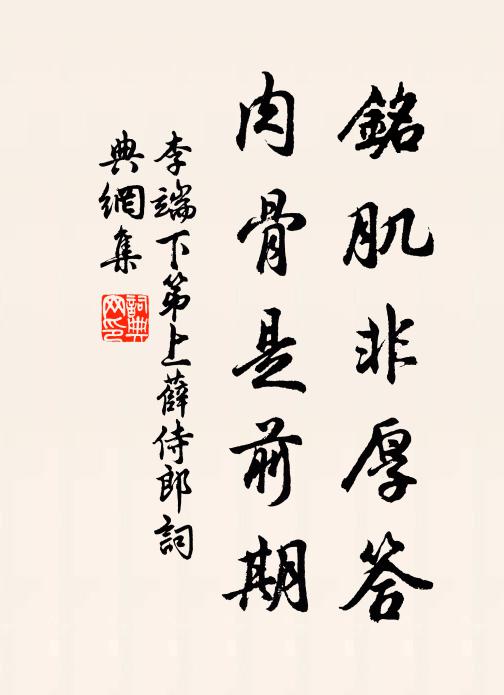 銘肌非厚答
肉骨是前期
李端下第上薛侍郎詞
典網集
詞典网印